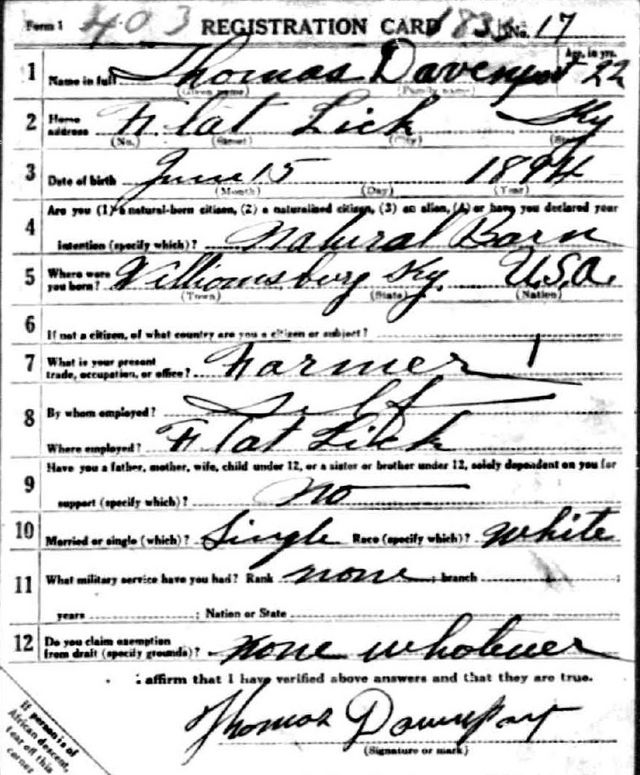 Form 1 403 REGISTRATION CARD 183 No. 17
1 Name in full Thomas Davenport Age, in yrs. 22
(Given name) (Family name)
2 Home address Flat Lick Ky
(No.) (Street) (City) (State)
3 Date of birth June 15 1894
(Month) (Day) (Year)
4 Are you (1) a natural-born citizen, (2) a naturalized citizen, (3) an alien, (4) or have you declared your
intention (specify which)? Natural Born
5 Where were you born? Williamsburg Ky. U.S.A.
(Town) (State) (Nation)
6 If not a citizen, of what country are you a citizen or subject?
7 What is your present trade, occupation, or office? Farmer 1
8 By whom employed? Self
Where employed? Flat Lick
9 Have you a father, mother, wife, child under 12, or a sister or brother under 12, solely dependent on you for
support (specify which)? no
10 Married or single (which)? Single Race (specify which)? White
11 What military service have you had? Rank none ; branch ;
years ; Nation or State
12 Do you claim exemption from draft (specify grounds)? none whatever
I affirm that I have verified above answers and that they are true.
Thomas Davenport
(Signature or mark)
If person is of
African descent,
tear off this
corner